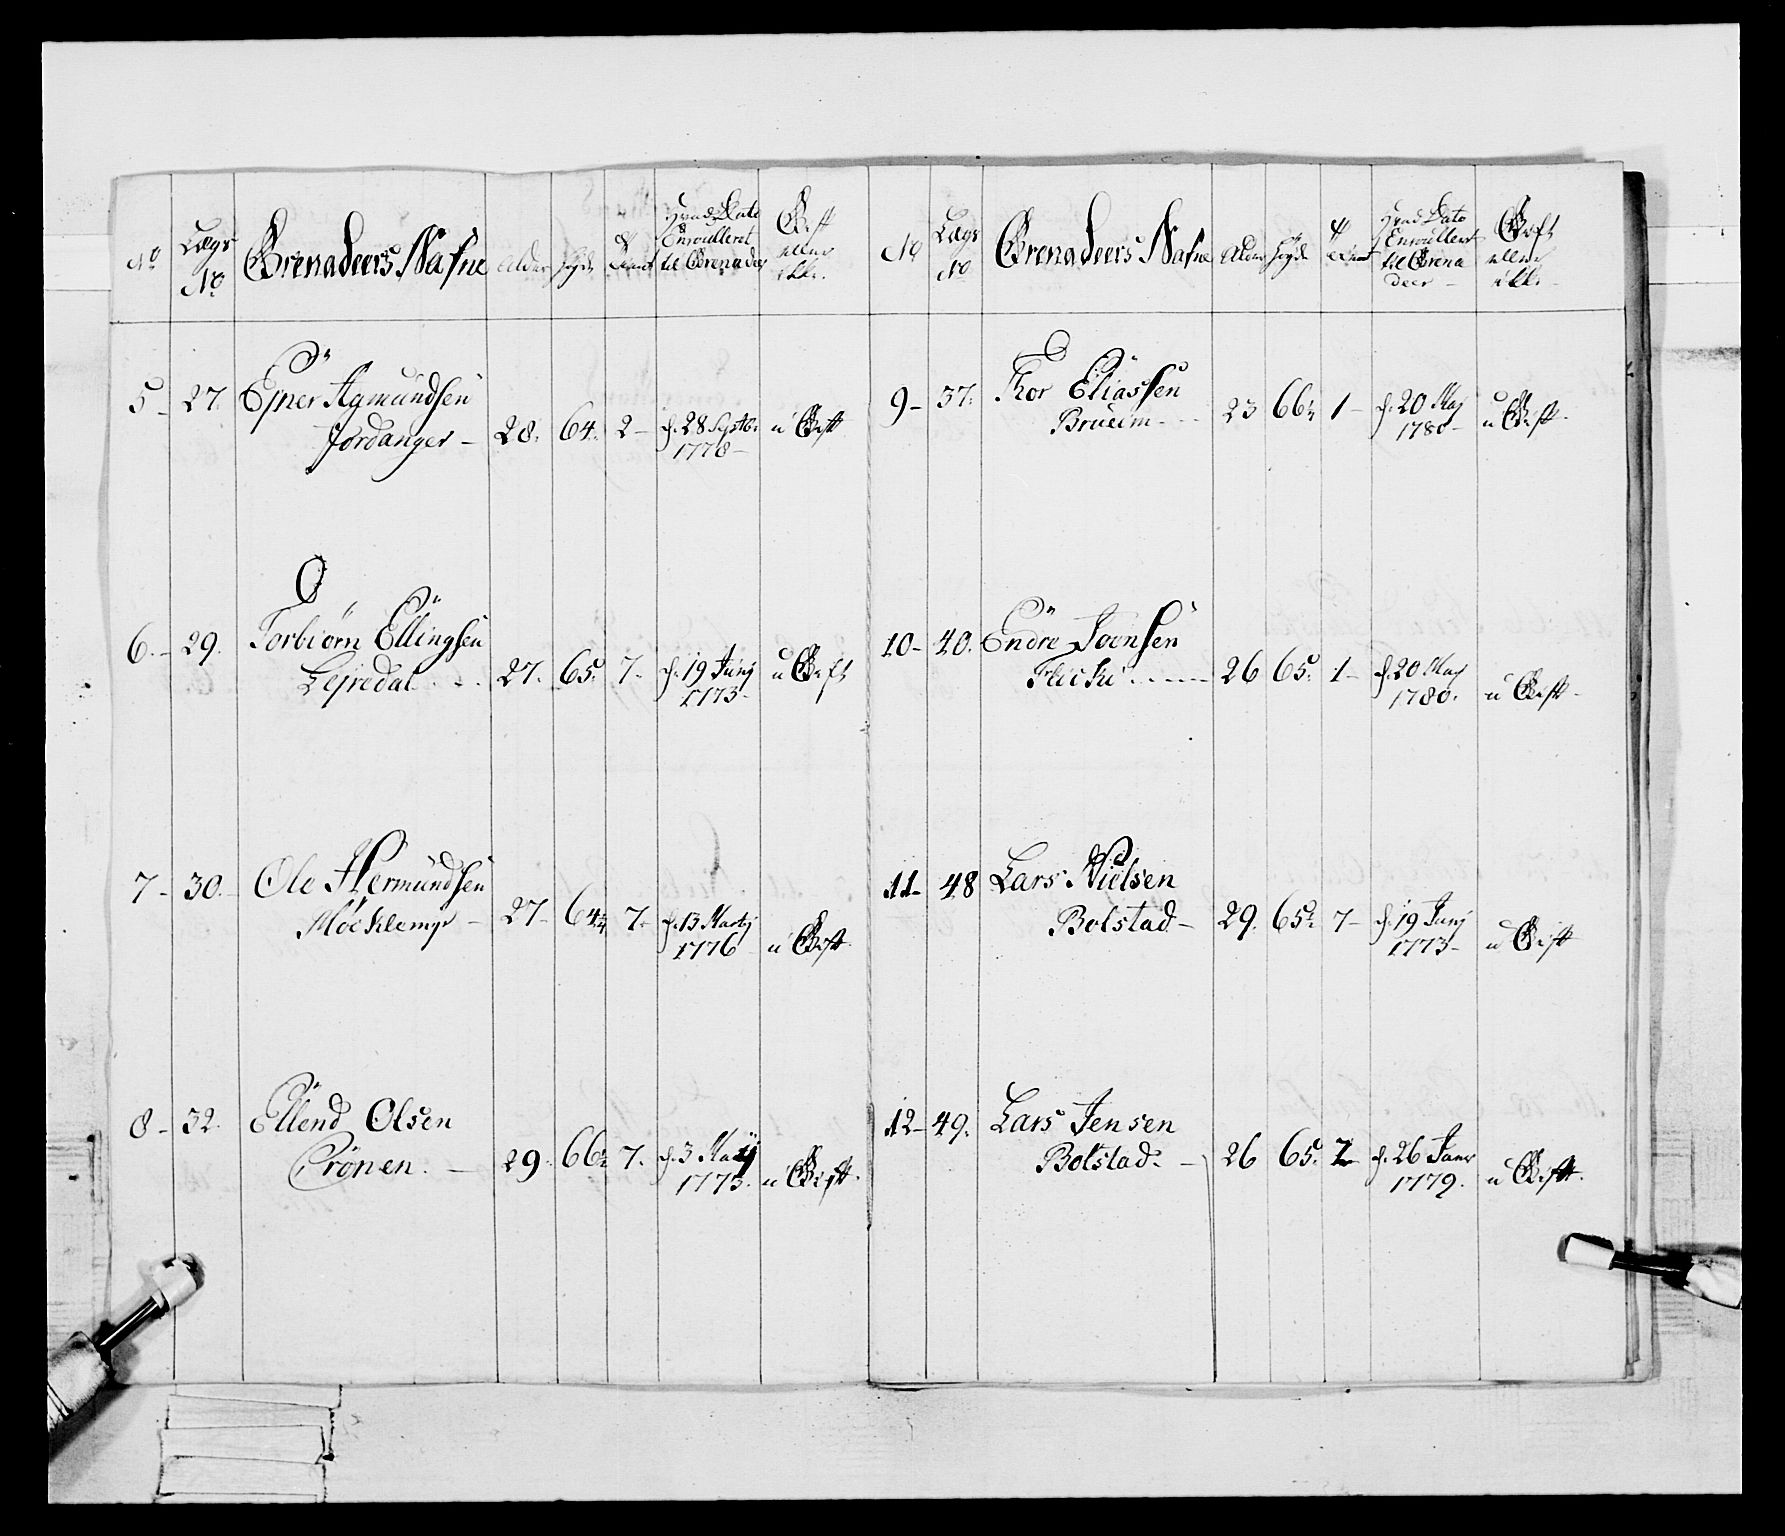 No
Lægs
No
Grenadeers Nafne
Alder
Høyde
Hvad Dato
Enroulleret
til Grenadeer
Gift
eller
ikke.
5 - 27. Ejner Agmundsen
Jordanger - 28. 64. 2 - d. 28 Septbr u Gift
1778 -
6. - 29. Torbiørn Ellingsen
Lejrdal . - . 27. 65. 7. d. 19 Junij u Gift
1773 -
7 - 30. - Ole Hermundsen
Møeklemyr - 27 - 64 7. d. 13 Martij
1776 u Gift
8 - 32. Ellend Olsen
Crønen. - 29. 66 7. d. 3 Maij
1773. u Gift.
No
Lægs
No
Grenadeers Nafne
Alder
Høyde
Hvad Dato
Enroullert
til Grena
deer -
Gift
eller
ikke
9 - 37. Thor Eliassen
Brueim - - 23 66 1 - d. 20 Maj
1780 - u Gift -
10 - 40. Endre Joensen
Flicki . - - - - 26 65. 1 - d. 20 Maj
1780. u Gift -
11 - 48 Lars Nielsen
Bolstad - 29. 65 7 - d. 19 Junij
1773 - u Gift
12 - 49. Lars Jensen
Bolstad - - 26 65. 2 d. 26 Janr
1779. u Gift.